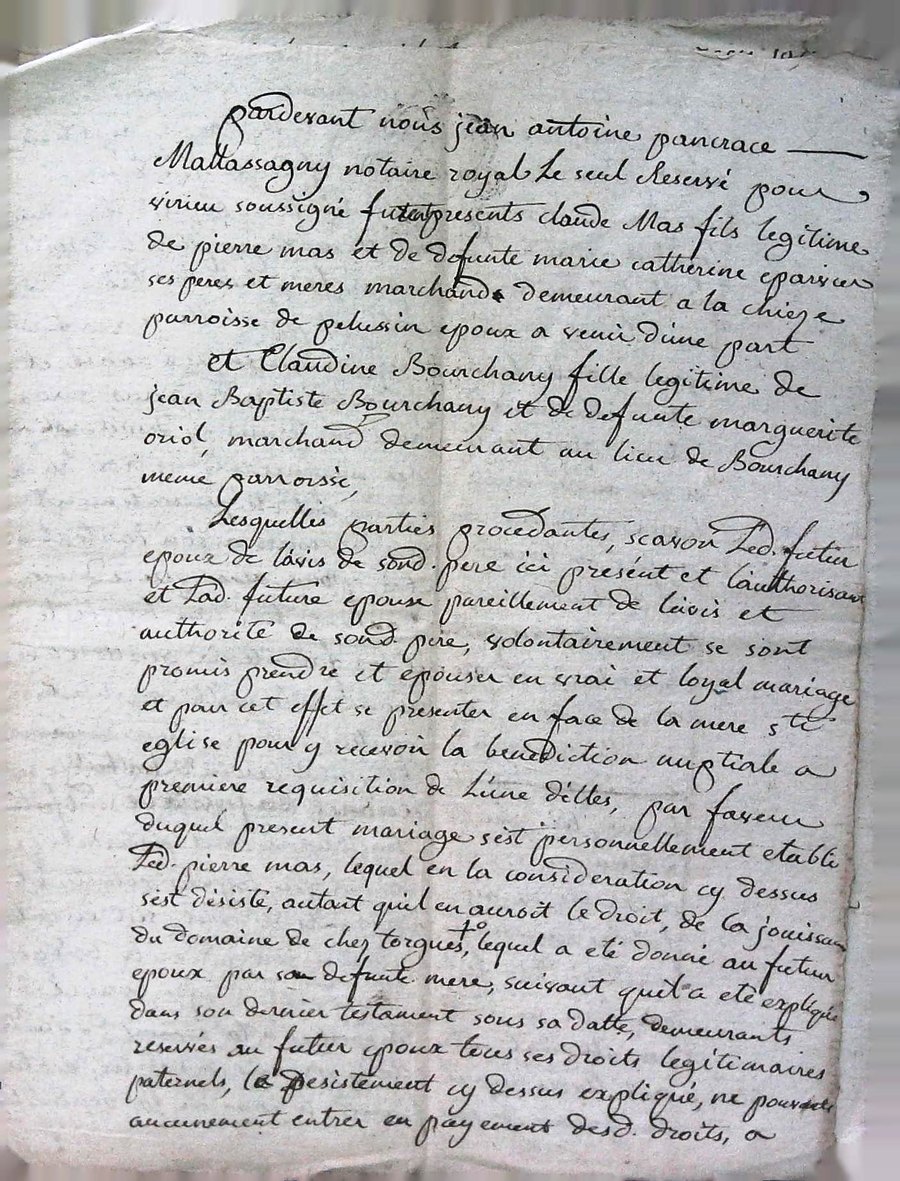 pardevant nous jean antoine pancrace
Mattassagny notaire royal Le seul Reservé pour
virieu soussigné furent presents claude Mas fils legitime
de pierre mas et de defunte marie catherine eparvier
ses peres et meres marchand demeurant a la chieze
parroisse de pelussin epoux a venir d'une part
et Claudine Bourchany fille legitime de
jean Baptiste Bourchany et de defunte marguerite
oriol, marchand demeurant au lieu de Bourchany
meme parroisse,
Lesquelles parties procedantes, scavoir Led. futur
epoux de lavis de sond. pere ici présent et lauthorisant
et Lad. future epouse pareillement de lavis et
authorité de sond. pere, volontairement se sont
promis prendre et epouser en vrai et loyal mariage
et pour cet effet se presenter en face de la mere ste
eglise pour y recevoir la benediction nuptiale a
premiere requisition de Lune d'elles, par faveur
duquel present mariage s'est personnellement etabli
Led. pierre mas, lequel en la consideration cy dessus
s'est désisté, autant quil en auroit le droit, de la jouissance
du domaine de chez torgues, lequel a eté donné au futur
epoux par sa defunte mere, suivant quil a eté expliqué
dans son dernier testament sous sa datte, demeurants
reservés au futur epoux tous ses droits legitimaires
paternels, le Desistement cy dessus expliqué, ne pouvant
aucunement entrer en payement desd. droits, a